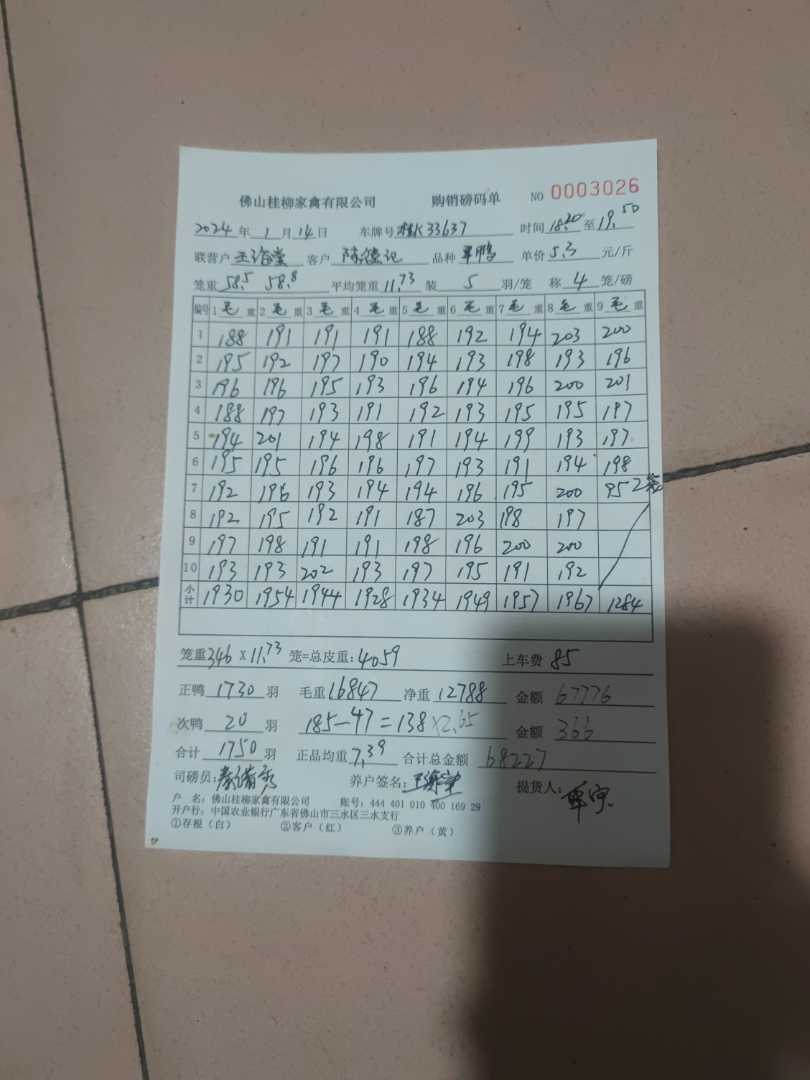 佛山桂柳家禽有限公司 购销磅码单 NO 0003026
2024年 1月14日 车牌号 桂K33637 时间18.20至19.50
联营户 客户 陈 记 品种 单价5.3元/斤
笼重58.5 58.8 平均笼重11.73 装 5 羽/笼 称 4 笼/磅
编号 1毛重 2毛重 3毛重 4毛重 5毛重 6毛重 7毛重 8毛重 9毛重
1 188 191 191 191 188 192 194 203 200
2 195 192 197 190 194 193 198 193 196
3 196 196 195 193 196 194 196 200 201
4 188 197 193 191 192 193 195 195 197
5 194 201 194 198 191 194 199 193 197
6 195 195 196 196 197 193 191 194 198
7 192 196 193 194 194 196 195 200 95 2笼
8 192 195 192 191 187 203 198 197
9 197 198 191 191 198 196 200 200
10 193 193 202 193 197 195 191 192
小计 1930 1954 1944 1928 1934 1949 1957 1967 1284
笼重346 X 11.73 笼=总皮重:4059 上车费 85
正鸭 1730 羽 毛重16847 净重12788 金额 67776
次鸭 20 羽 185-47=138×2.65 金额 366
合计 1750 羽 正品均重7.39 合计总金额 68227
司磅员: 养户签名: 提货人:
户 名:佛山桂柳家禽有限公司 账号:444 401 010 400 169 29
开户行:中国农业银行广东省佛山市三水区三水支行
①存根(白) ②客户(红) ③养户(黄)